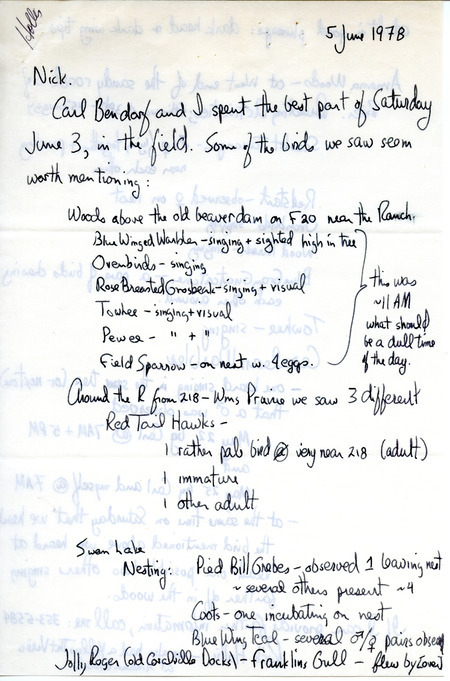 Holles
5 June 1978
Nick.
Carl Bendorf and I spent the best part of Saturday
June 3, in the field. Some of the birds we saw seem
worth mentioning:
Woods above the old beaverdam on F20 near the Ranch.
Blue Winged Warbler - singing + sighted high in tree
Ovenbirds - singing
Rose Breasted Grosbeak - singing + visual
Towhee - singing + visual
Pewee - " + "
Field Sparrow - on nest w. 4 eggs.
this was
~11 AM
what should
be a dull time
of the day.
Around the R from 218 - Wms Prairie we saw 3 different
Red Tail Hawks -
1 rather pale bird @ very near 218 (adult)
1 immature
1 other adult
Swan Lake
Nesting: Pied Bill Grebes - observed 1 leaving nest
~ several others present ~4
Coots - one incubating on nest
Blue Wing Teal - several ♂/♀ pairs observed
Jolly Roger (old Coralville Docks) - Franklins Gull - flew by